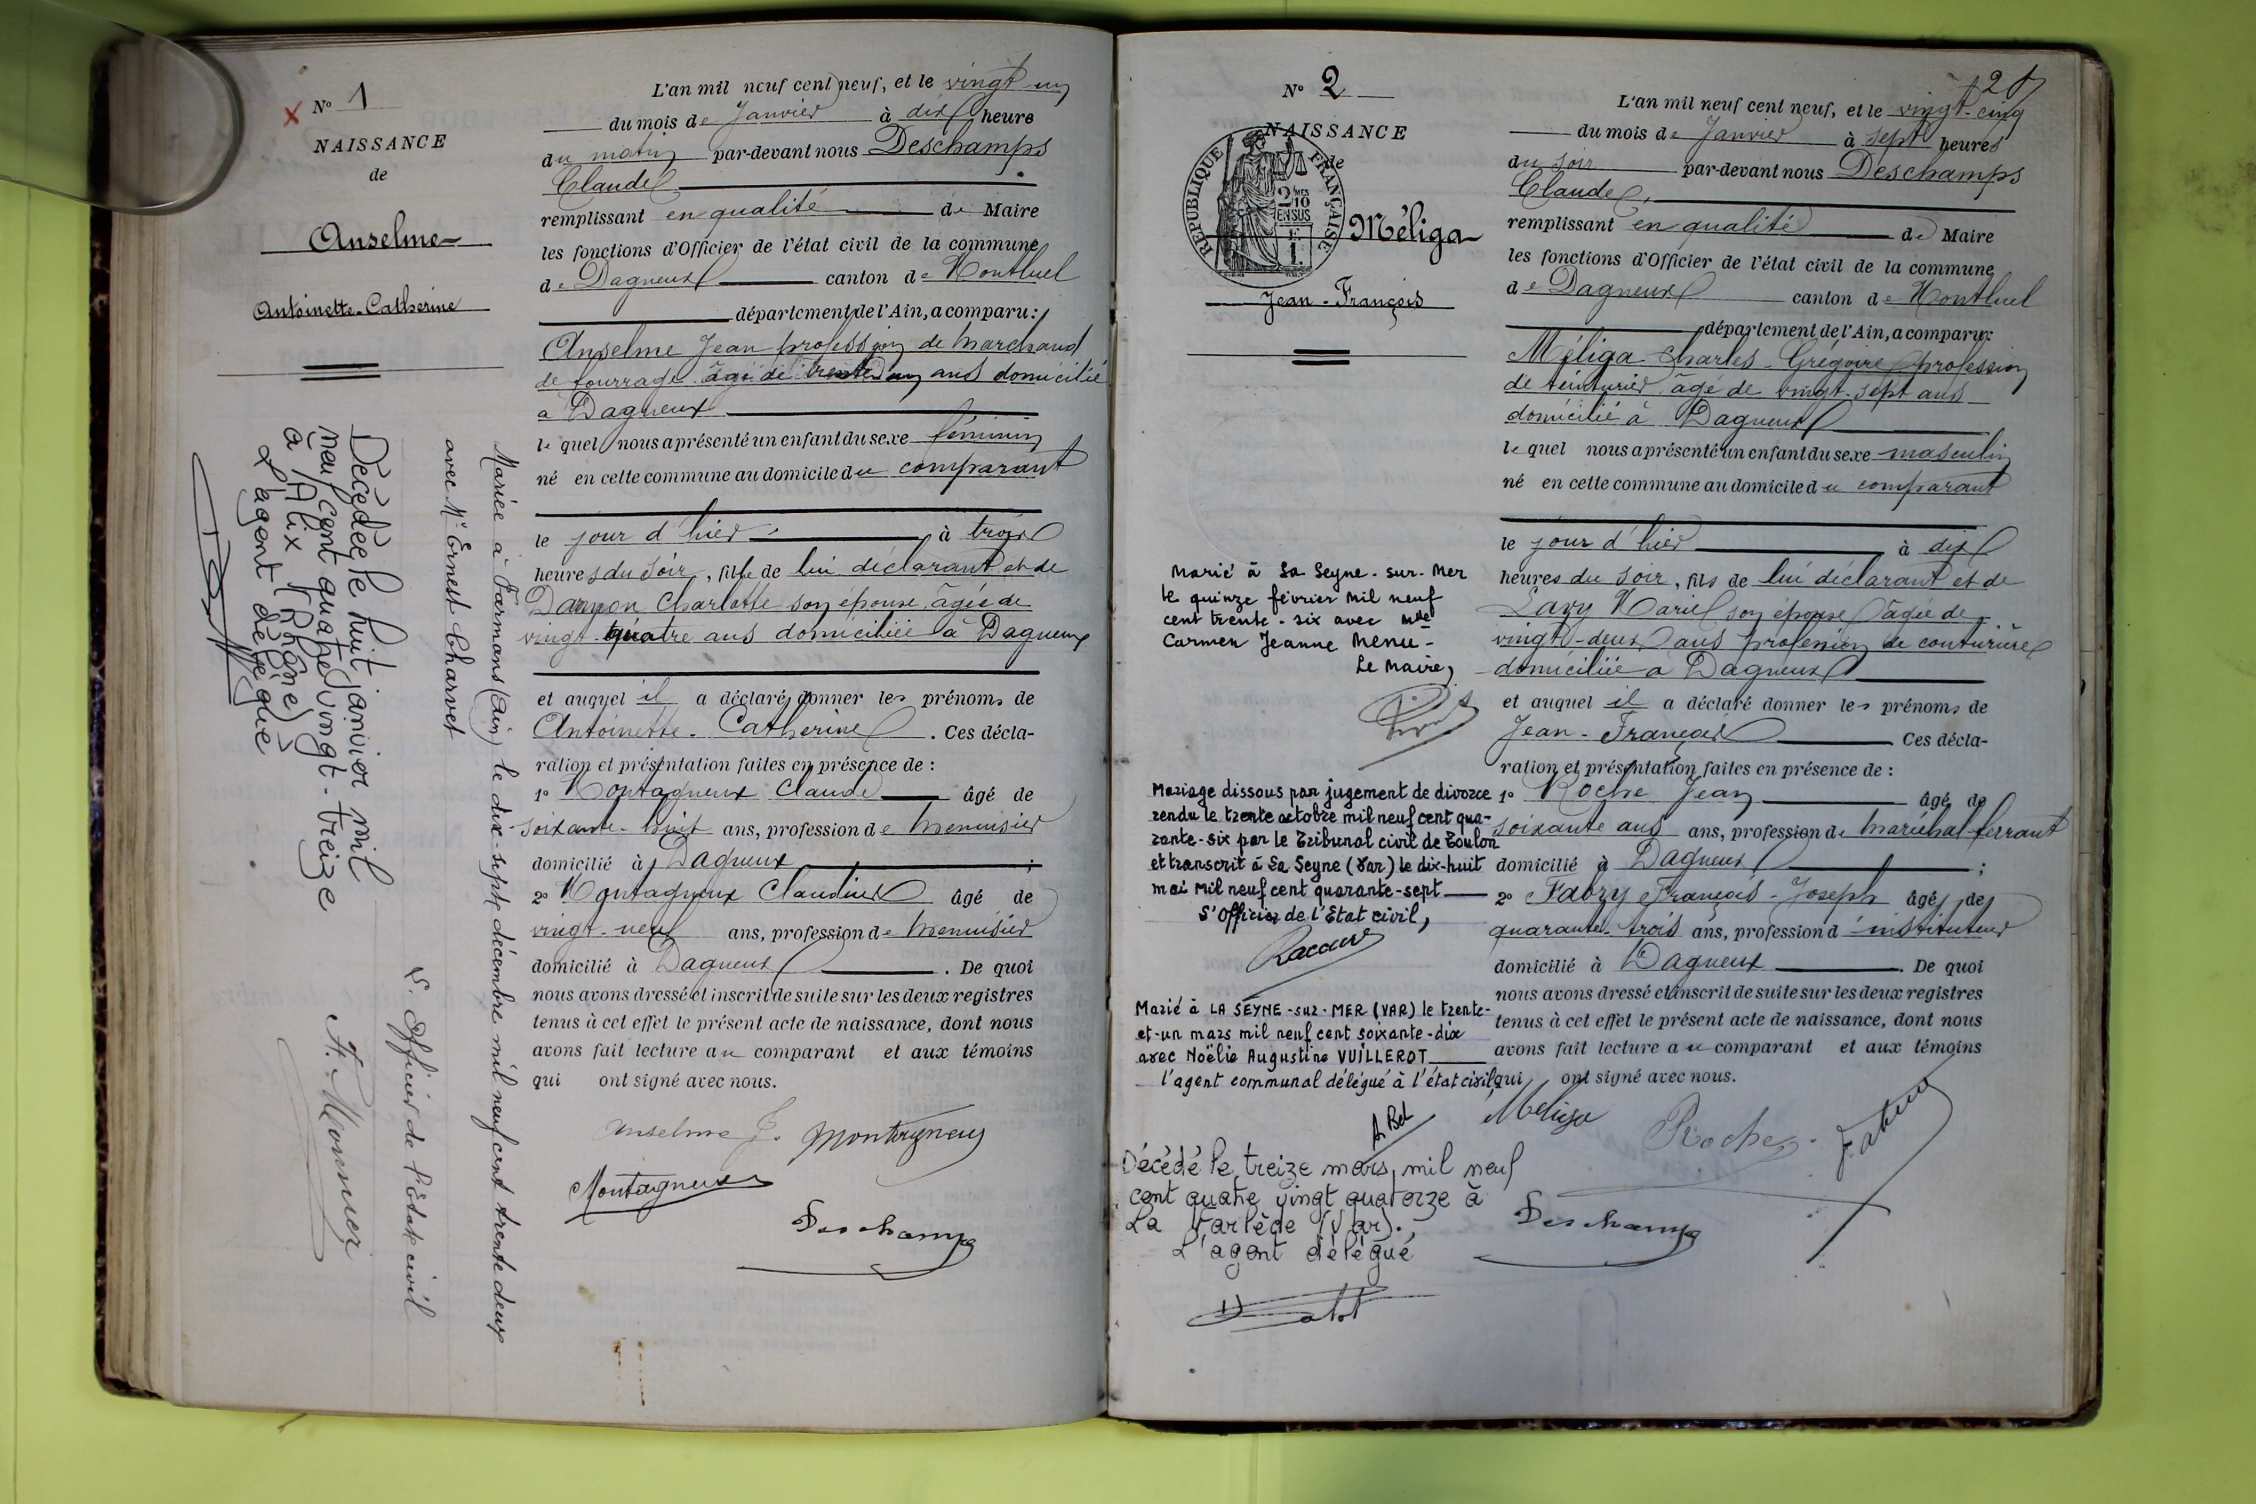 N° 1
NAISSANCE
de
Anselme
Antoinette-Catherine
Décédée le huit janvier mil
neuf cent quatre vingt-treize
à Alix (Rhône)
L'agent délégué
Mariée à Parmans (Ain) le dix-sept décembre mil neuf cent trente deux
avec Mr Ernest Charvet
L'Officier de l'Etat civil
L'an mil neuf cent neuf, et le vingt un
du mois de Janvier à dix heure
du matin par-devant nous Deschamps
Claude
remplissant en qualité de Maire
les fonctions d'Officier de l'état civil de la commune
de Dagneux canton de Montluel
département de l'Ain, a comparu:
Anselme Jean profession de marchand
de fourrage âgé de trente un ans domicilié
à Dagneux
le quel nous a présenté un enfant du sexe féminin
né en cette commune au domicile du comparant
le jour d'hier à trois
heures du soir, fille de lui déclarant et de
Charlotte son épouse âgée de
vingt-quatre ans domiciliée à Dagneux
et auquel il a déclaré donner les prénoms de
Antoinette-Catherine. Ces décla-
ration et présentation faites en présence de :
1° Montagneux Claude âgé de
soixante-huit ans, profession de menuisier
domicilié à Dagneux ;
2° Montagneux Claudius âgé de
vingt-neuf ans, profession de menuisier
domicilié à Dagneux. De quoi
nous avons dressé et inscrit de suite sur les deux registres
tenus à cet effet le présent acte de naissance, dont nous
avons fait lecture au comparant et aux témoins
qui ont signé avec nous.
Anselme J. Montagneux
Montagneux
Deschamps
N° 2
NAISSANCE
de
REPUBLIQUE FRANÇAISE
2/10 EN SUS
Méliga
Jean-François
Marié à La Seyne-sur-Mer
le quinze février mil neuf
cent trente-six avec Melle
Carmen Jeanne Menu-
Le Maire,
Mariage dissous par jugement de divorce
rendu le trente octobre mil neuf cent qua-
rante-six par le Tribunal civil de Toulon
et transcrit à La Seyne (Var) le dix-huit
mai mil neuf cent quarante-sept
L'Officier de l'Etat civil,
Marié à LA SEYNE-sur-MER (VAR) le trente-
et-un mars mil neuf cent soixante-dix
avec Noëlie Augustine VUILLEROT
l'agent communal délégué à l'état civil,
Décédé le treize mars, mil neuf
cent quatre vingt quatorze à
La Farlède (Var).
L'agent délégué
20
L'an mil neuf cent neuf, et le vingt-cinq
du mois de Janvier à sept heures
du soir par-devant nous Deschamps
Claude,
remplissant en qualité de Maire
les fonctions d'Officier de l'état civil de la commune
de Dagneux canton de Montluel
département de l'Ain, a comparu:
Méliga Charles-Grégoire profession
de teinturier âgé de vingt-sept ans
domicilié à Dagneux
le quel nous a présenté un enfant du sexe masculin
né en cette commune au domicile du comparant
le jour d'hier à dix
heures du soir, fils de lui déclarant et de
Lavy Marie son épouse âgée de
vingt-deux ans profession de couturière
domiciliée à Dagneux
et auquel il a déclaré donner les prénoms de
Jean-François Ces décla-
ration et présentation faites en présence de :
1° Roche Jean âgé de
soixante ans ans, profession de maréchal-ferrant
domicilié à Dagneux ;
2° Fabry François-Joseph âgé de
quarante-trois ans, profession d'instituteur
domicilié à Dagneux. De quoi
nous avons dressé et inscrit de suite sur les deux registres
tenus à cet effet le présent acte de naissance, dont nous
avons fait lecture au comparant et aux témoins
qui ont signé avec nous.
Méliga Roche
Deschamps